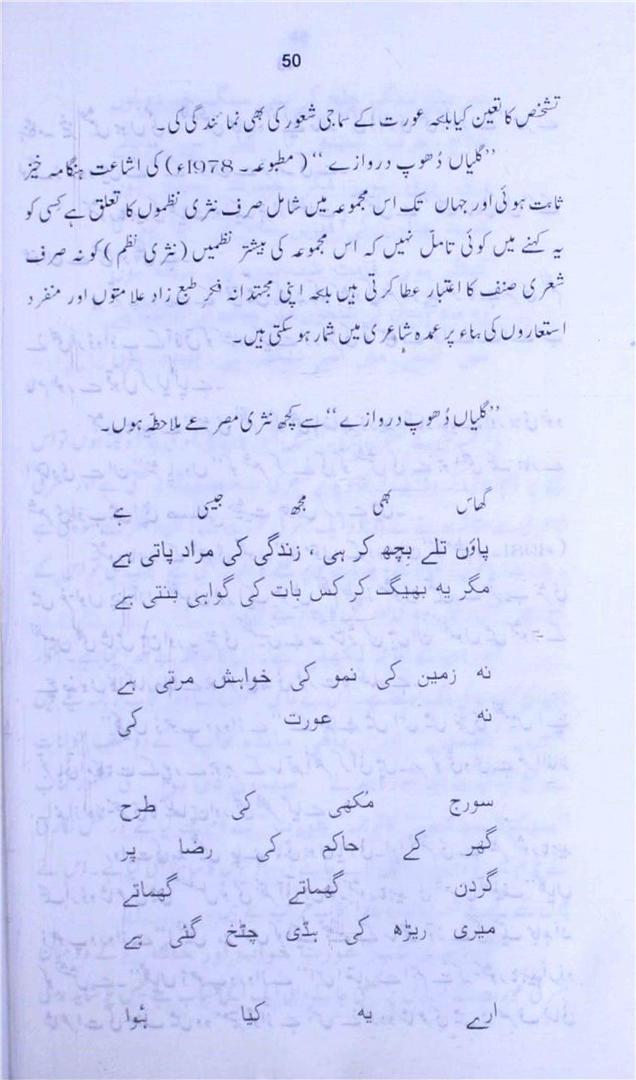 50
تشخص کا تعین کیا بلکہ عورت کے سماجی شعور کی بھی نمائندگی کی۔
”گلیاں دُھوپ دروازے“ (مطبوعہ۔1978ء) کی اشاعت ہنگامہ خیز
ثابت ہوئی اور جہاں تک اس مجموعہ میں شامل صرف نثری نظموں کا تعلق ہے کسی کو
یہ کہنے میں کوئی تامل نہیں کہ اس مجموعہ کی بیشتر نظمیں (نثری نظم) کو نہ صرف
شعری صنف کا اعتبار عطا کرتی ہیں بلکہ اپنی مجتہدانہ فکر طبع زاد علامتوں اور منفرد
استعاروں کی بناء پر عمدہ شاعری میں شمار ہو سکتی ہیں۔
”گلیاں دُھوپ دروازے“ سے کچھ نثری مصرعے ملاحظہ ہوں۔
گھاس بھی مجھ جیسی ہے
پاؤں تلے بِچھ کر ہی ، زندگی کی مراد پاتی ہے
مگر یہ بھیگ کر کس بات کی گواہی بنتی ہے
نہ زمین کی نمو کی خواہش مرتی ہے
نہ عورت کی
سورج مُکھی کی طرح
گھر کے حاکم کی رضا پر
گردن گھماتے گھماتے
میری ریڑھ کی ہڈی چٹخ گئی ہے
ارے یہ کیا ہُوا